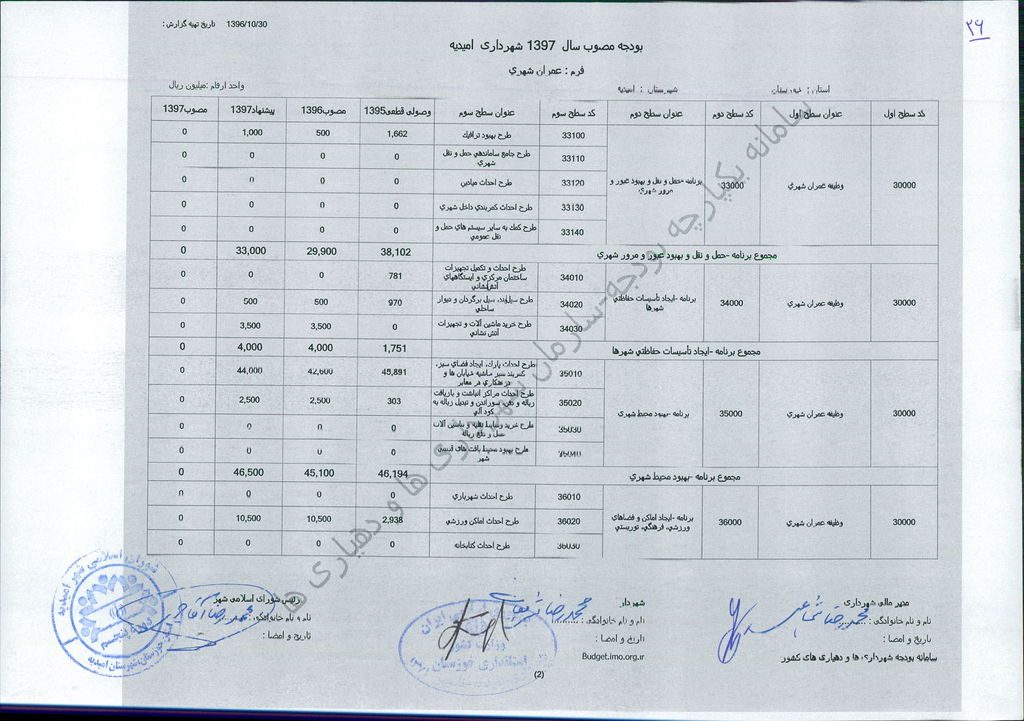 ۲۶
تاریخ تهیه گزارش : 1396/10/30
بودجه مصوب سال 1397 شهرداری امیدیه
فرم : عمران شهري
استان : خوزستان شهرستان : امیدیه واحد ارقام :میلیون ریال
کد سطح اول عنوان سطح اول کد سطح دوم عنوان سطح دوم کد سطح سوم عنوان سطح سوم وصولی قطعی1395 مصوب1396 پیشنهاد1397 مصوب1397
30000 وظیفه عمران شهري 33000 برنامه -حمل و نقل و بهبود عبور و مرور شهري
33100 طرح بهبود ترافيك 1,662 500 1,000 0
33110 طرح جامع ساماندهي حمل و نقل شهري 0 0 0 0
33120 طرح احداث میادین 0 0 0 0
33130 طرح احداث کمربندي داخل شهري 0 0 0 0
33140 طرح كمك به ساير سيستم هاي حمل و نقل عمومي 0 0 0 0
مجموع برنامه -حمل و نقل و بهبود عبور و مرور شهري 38,102 29,900 33,000 0
30000 وظیفه عمران شهري 34000 برنامه -ایجاد تأسیسات حفاظتي شهرها
34010 طرح احداث و تکمیل تجهیزات ساختمان مرکزي و ایستگاههاي آتش‌نشاني 781 0 0 0
34020 طرح سیل‌بند، سیل برگردان و دیوار ساحلي 970 500 500 0
34030 طرح خرید ماشین آلات و تجهیزات آتش نشاني 0 3,500 3,500 0
مجموع برنامه -ایجاد تأسیسات حفاظتي شهرها 1,751 4,000 4,000 0
30000 وظیفه عمران شهري 35000 برنامه -بهبود محیط شهري
35010 طرح احداث پارك، ایجاد فضاي سبز، کمربند سبز حاشیه خیابان ها و درختکاري در معابر 45,891 42,600 44,000 0
35020 طرح احداث مراکز انباشت و بازیافت زباله و دفن، سوزاندن و تبدیل زباله به کود آلي 303 2,500 2,500 0
35030 طرح خرید وسایط نقلیه و ماشین آلات حمل و دفع زباله 0 0 0 0
35040 طرح بهبود محیط بافت هاي قدیمي شهر 0 0 0 0
مجموع برنامه -بهبود محیط شهري 46,194 45,100 46,500 0
30000 وظیفه عمران شهري 36000 برنامه -ایجاد اماکن و فضاهاي ورزشي، فرهنگي، توریستي
36010 طرح احداث شهربازي 0 0 0 0
36020 طرح احداث اماکن ورزشي 2,938 10,500 10,500 0
36030 طرح احداث کتابخانه 0 0 0 0
سامانه یکپارچه بودجه-سازمان شهرداری ها و دهیاری ها
مدیر مالی شهرداری شهردار رئیس شورای اسلامی شهر
نام و نام خانوادگی : نام و نام خانوادگی : نام و نام خانوادگی :
تاریخ و امضا : تاریخ و امضا : تاریخ و امضا :
سامانه بودجه شهرداری ها و دهیاری های کشور Budget.imo.org.ir
(2)
شورای اسلامی شهر امیدیه
استانداری خوزستان